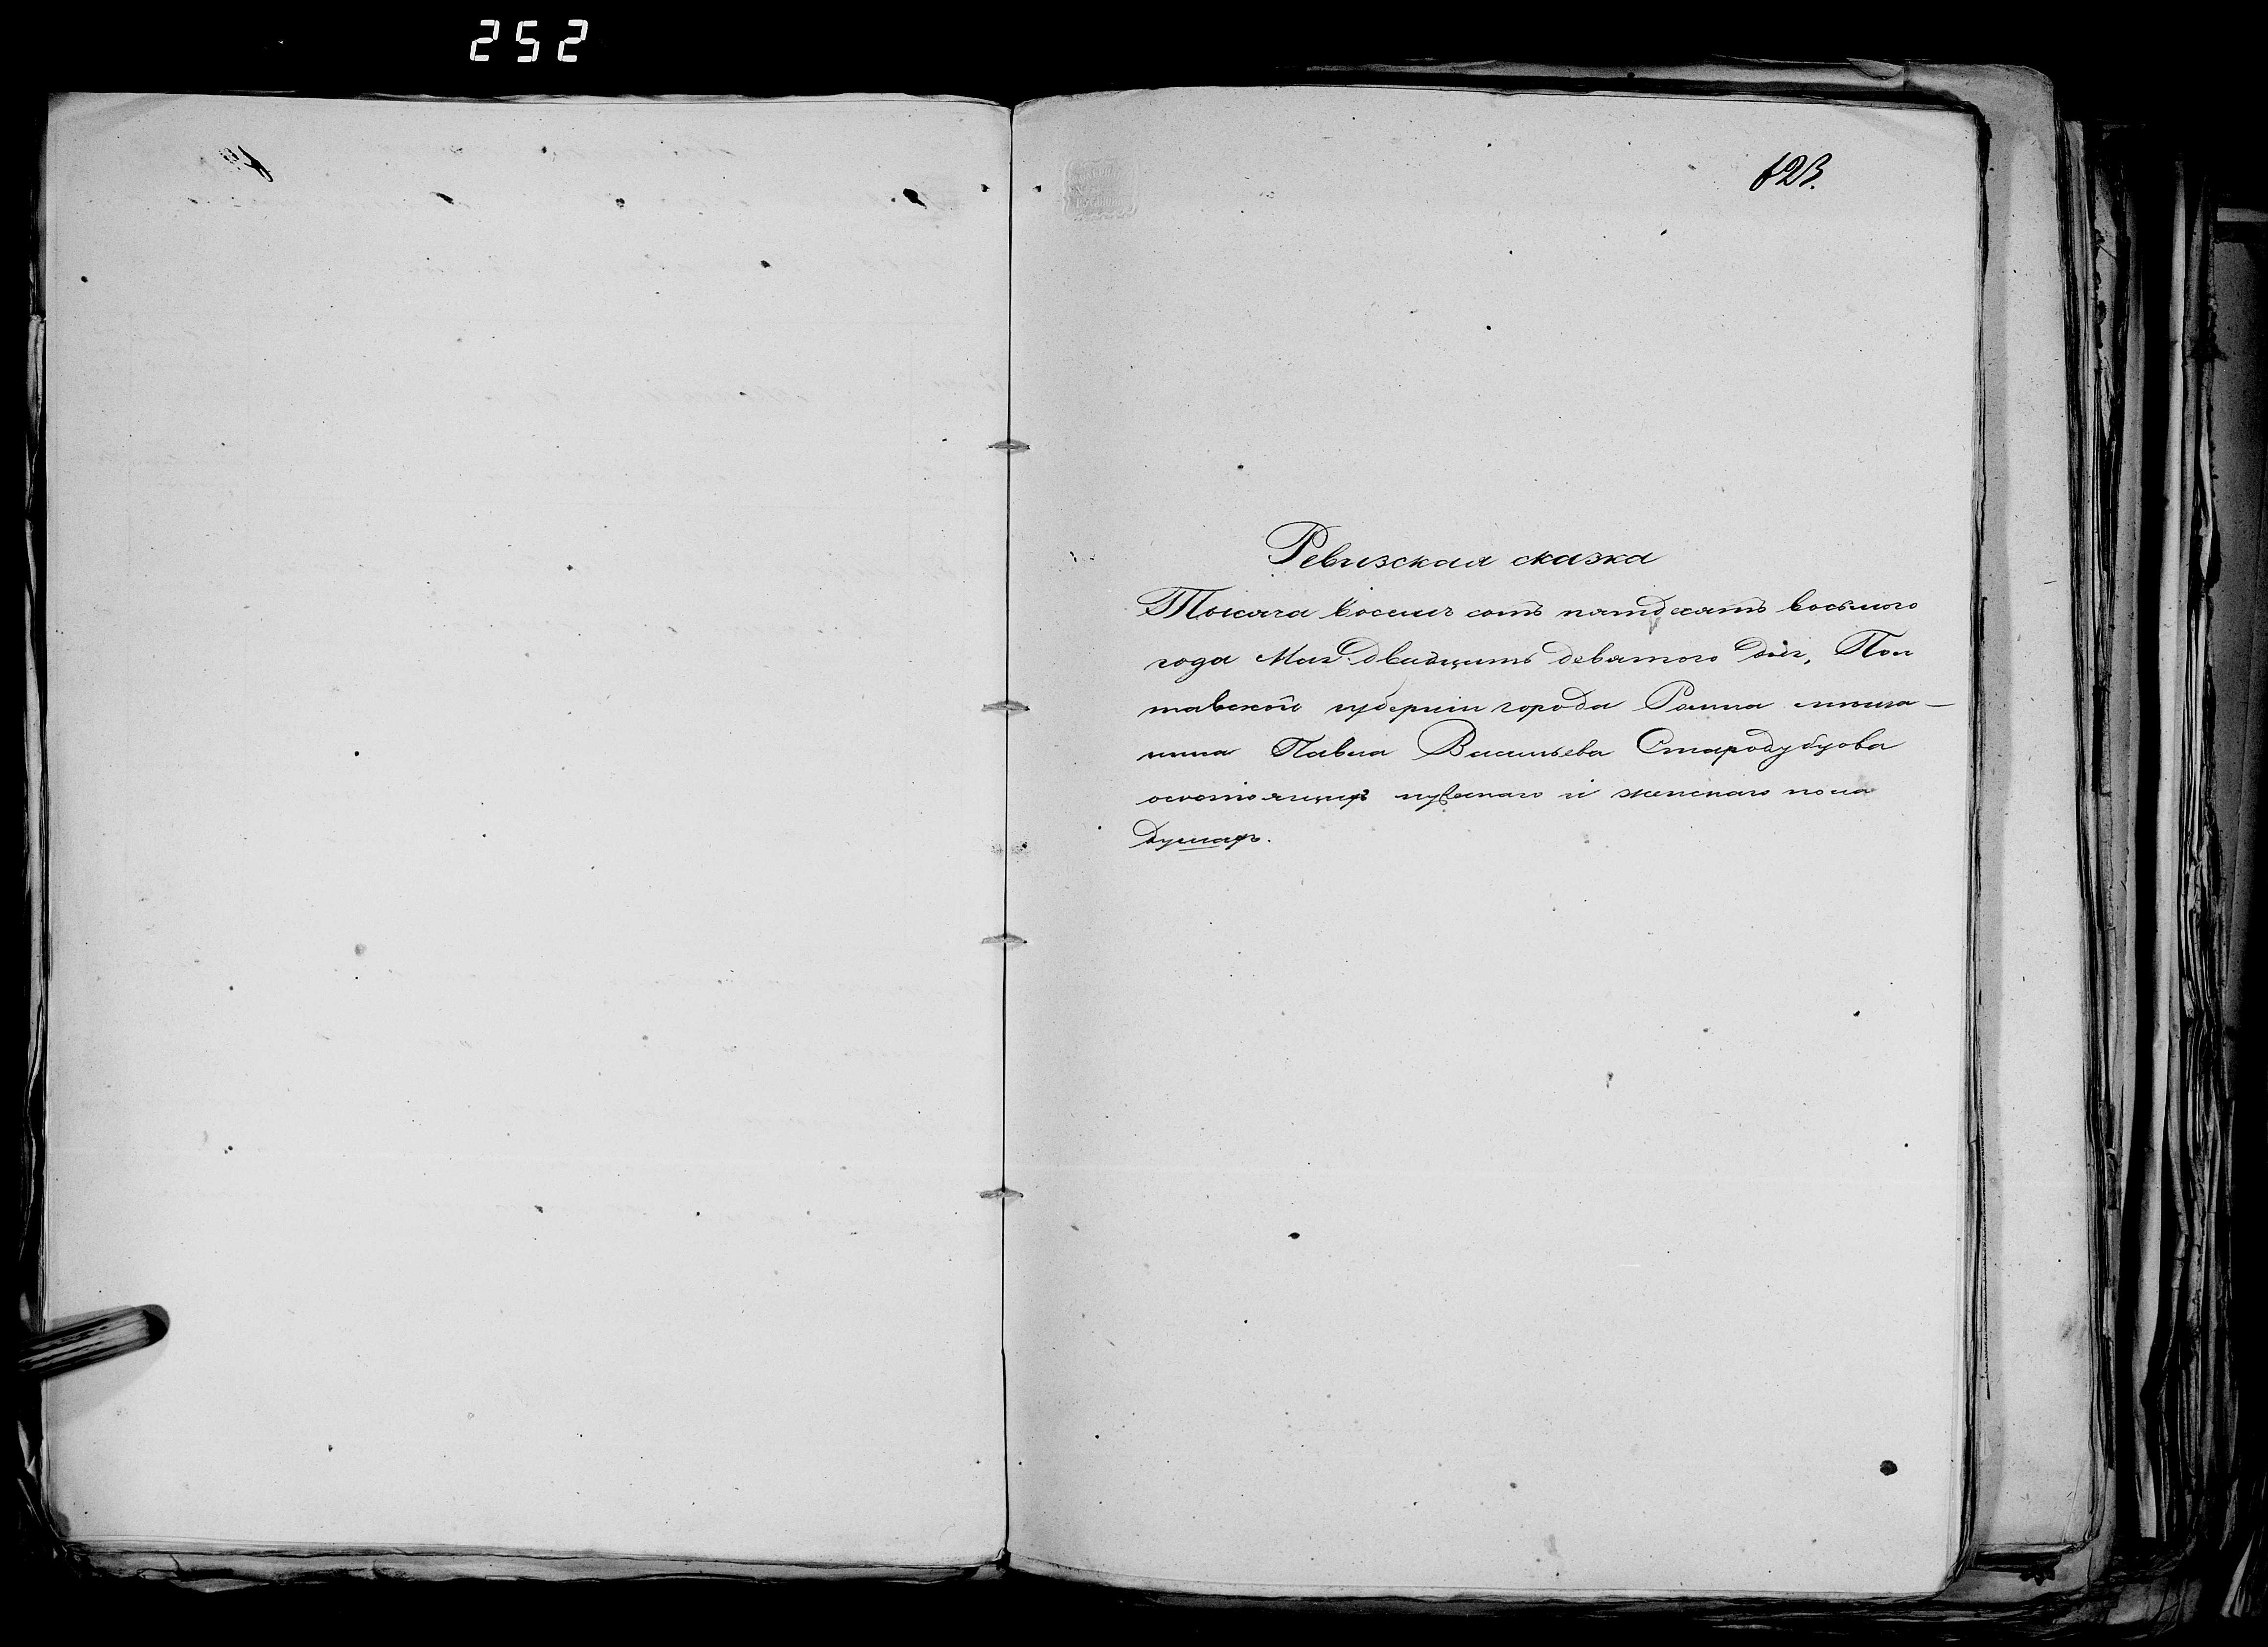 252
123.
Ревизская сказка
Тысяча восемь сотъ пятдесятъ восьмого
года Мая двадцать девятого дня, Пол
тавской губерніи города Ромна мѣща-
нина Павла Васильева Стародубцова
о состоящихъ мужескаго и женскаго пола
душахъ.